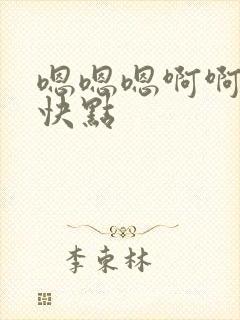 嗯嗯嗯啊啊
快點
李束林